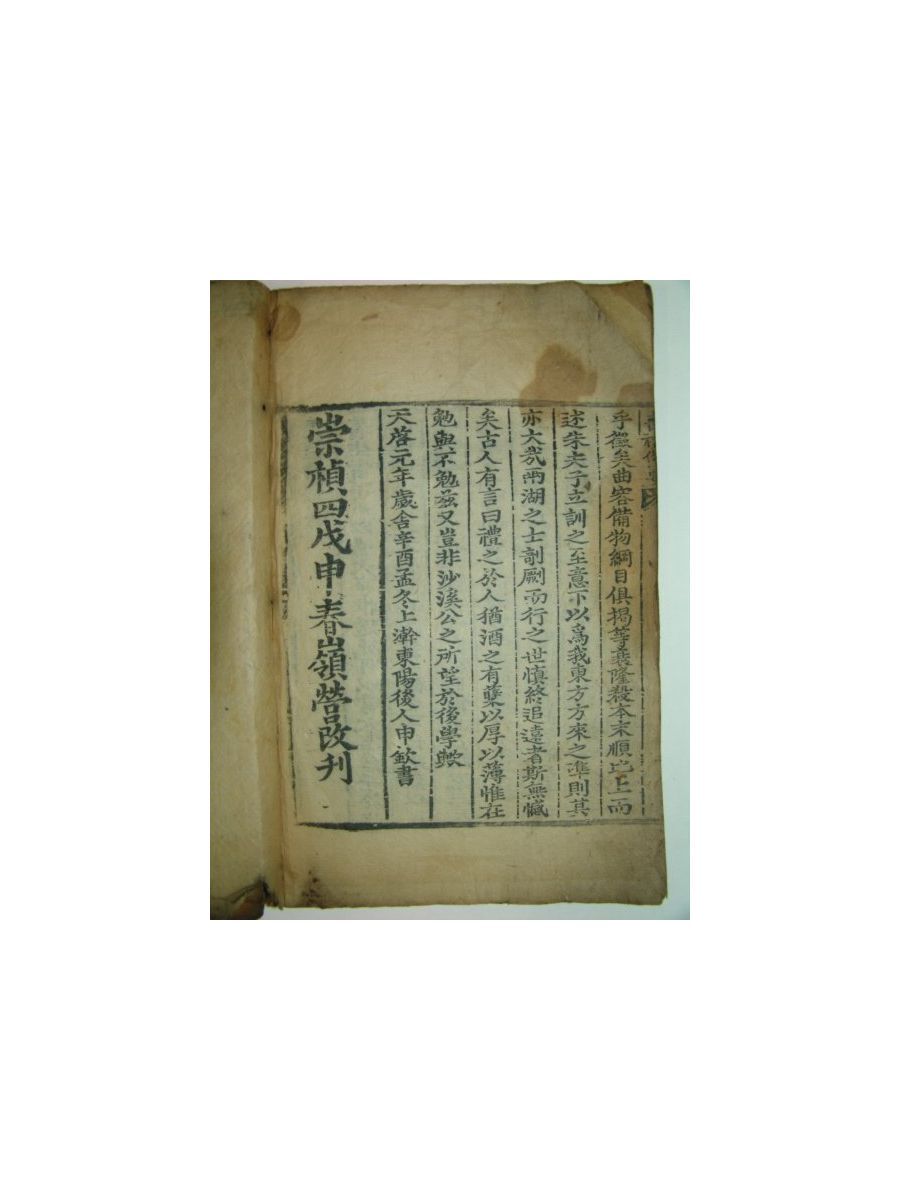 乎徵矣曲容備物綱目俱揭等衰隆殺本末順比上而
述朱夫子立訓之至意下以爲我東方方來之準則其
亦大哉兩湖之士剞劂而行之世愼終追遠者斯無憾
矣古人有言曰禮之於人猶酒之有糵以厚以薄惟在
勉與不勉玆又豈非沙溪公之所望於後學歟
天啓元年歲舍辛酉孟冬上澣東陽後人申欽書
崇禎四戊申春嶺營改刊